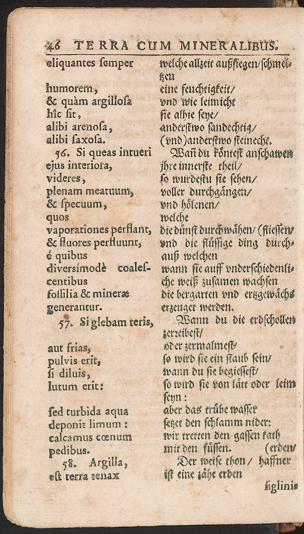 46 TERRA CUM MINERALIBUS.
eliquantes semper welche allzeit außfliegen/ schmel-
tzen
humorem, eine feuchtigkeit/
& quàm argillosa vnd wie leimicht
hîc sit, sie alhie seye/
alibi arenosa, anderstwo sandechtig/
alibi saxosa. (vnd) anderstwo steineche.
56. Si queas intueri Wañ du köntest anschawen
ejus interiora, jhre innerste theil/
videres, so wurdestu sie sehen/
plenam meatuum, voller durchgängen/
& specuum, vnd hölenen/
quos welche
vaporationes perflant, die dünst durchwähen/ (fliessen/
& fluores perfluunt, vnd die flüssige ding durch-
é quibus auß welchen
diversimodè coales- wann sie auff vnderschiedenli-
centibus che weiß zusamen wachsen
fossilia & mineræ die bergarten vnd ertzgewächs
generantur. erzeuget werden.
57. Si glebam teris, Wann du die erdschollen
zerreibest/
aut frias, oder zermalmest/
pulvis erit, so wird sie ein staub sein/
si diluis, wann du sie begiessest/
lutum erit: so wird sie von lätt oder leim
seyn:
sed turbida aqua aber das trübe wasser
deponit limum: setzet den schlamm nider:
calcamus cœnum wir tretten den gassen kath
pedibus. mit den füssen. (erden/
58. Argilla, Der weisse thon/ haffner
est terra tenax ist eine zähe erden
figlinis